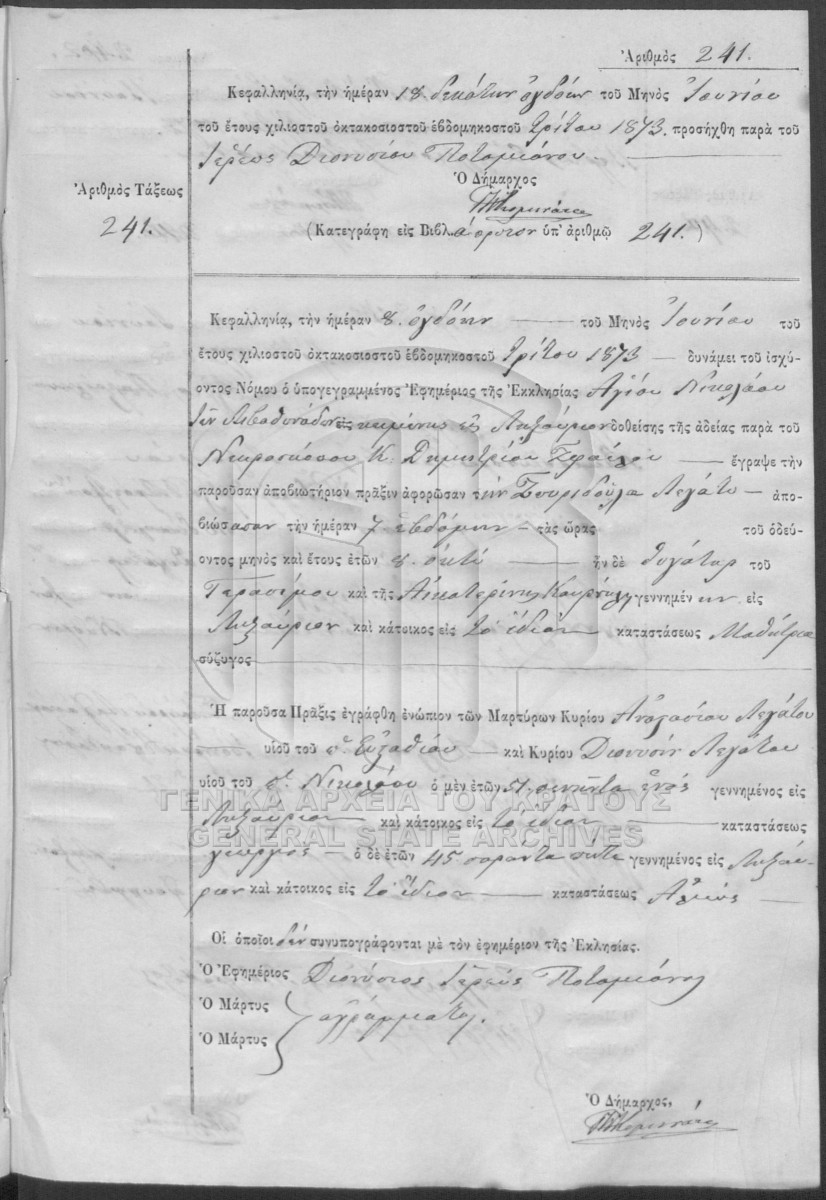 Ἀριθμὸς 241.
Κεφαλληνίᾳ, τὴν ἡμέραν 18 δεκάτην ὀγδόην τοῦ Μηνὸς Ἰουνίου
τοῦ ἔτους χιλιοστοῦ ὀκτακοσιοστοῦ ἑβδομηκοστοῦ τρίτου 1873. προσήχθη παρὰ τοῦ
Ἱερέως Διονυσίου Ποταμιάνου.
Ὁ Δήμαρχος
Ἀριθμὸς Τάξεως
241.
(Κατεγράφη εἰς Βιβλ. ὑπ' ἀριθμῷ 241.)
Κεφαλληνίᾳ, τὴν ἡμέραν 8. ὀγδόην τοῦ Μηνὸς Ἰουνίου τοῦ
ἔτους χιλιοστοῦ ὀκτακοσιοστοῦ ἑβδομηκοστοῦ τρίτου 1873 δυνάμει τοῦ ἰσχύ-
οντος Νόμου ὁ ὑπογεγραμμένος Ἐφημέριος τῆς Ἐκκλησίας Ἁγίου Νικολάου
κειμένης εἰς Ληξούριον δοθείσης τῆς ἀδείας παρὰ τοῦ
Κ. Δημητρίου ἔγραψε τὴν
παροῦσαν ἀποβιωτήριον πρᾶξιν ἀφορῶσαν τὴν Σπυριδούλα Λεγάτου ἀπο-
βιώσασαν τὴν ἡμέραν 7 ἑβδόμην τὰς ὥρας τοῦ ὁδεύ-
οντος μηνὸς καὶ ἔτους ἐτῶν 8. ὀκτὼ ἦν δὲ θυγάτηρ τοῦ
Γερασίμου καὶ τῆς Αἰκατερίνης γεννημένην εἰς
Ληξούριον καὶ κάτοικος εἰς τὸ ἴδιον καταστάσεως Μαθήτρια
σύζυγος
Ἡ παροῦσα Πρᾶξις ἐγράφθη ἐνώπιον τῶν Μαρτύρων Κυρίου Ἀναστασίου Λεγάτου
υἱοῦ τοῦ π. Εὐσταθίου καὶ Κυρίου Διονυσίου Λεγάτου
υἱοῦ τοῦ π. Νικολάου ὁ μὲν ἐτῶν 51 πενῆντα ἑνός γεννημένος εἰς
Ληξούριον καὶ κάτοικος εἰς τὸ ἴδιον καταστάσεως
γεωργός ὁ δὲ ἐτῶν 45 σαράντα πέντε γεννημένος εἰς Ληξού-
ριον καὶ κάτοικος εἰς τὸ ἴδιον καταστάσεως Ἁλιεύς
ΓΕΝΙΚΑ ΑΡΧΕΙΑ ΤΟΥ ΚΡΑΤΟΥΣ
GENERAL STATE ARCHIVES
Οἱ ὁποῖοι δὲν συνυπογράφονται μὲ τὸν ἐφημέριον τῆς Ἐκλησίας.
Ὁ Ἐφημέριος Διονύσιος Ἱερεὺς Ποταμιάνος
Ὁ Μάρτυς
ἀγράμματοι.
Ὁ Μάρτυς
Ὁ Δήμαρχος,